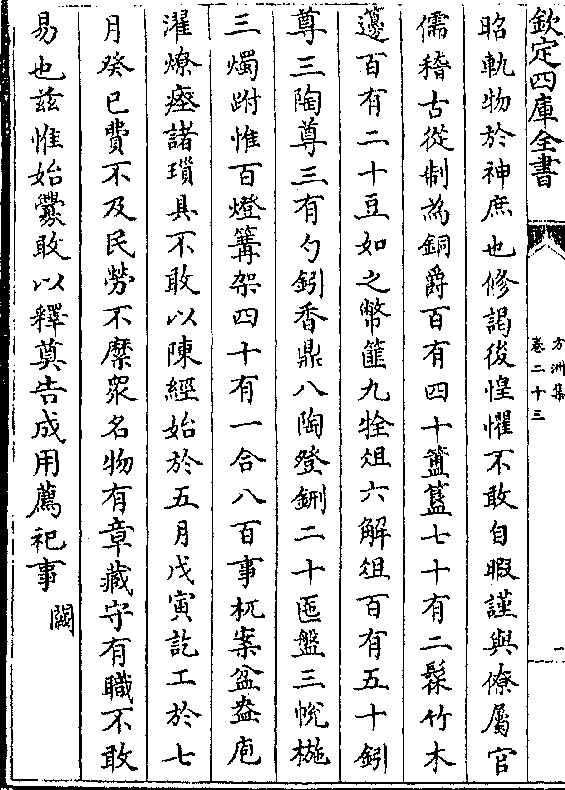 欽定四庫全書
方洲集
卷二十三
昭軌物於神庶也修謁後惶懼不敢自暇謹與僚屬官
儒稽古從制為銅爵百有四十簠簋七十有二髹竹木
籩百有二十豆如之幣篚九牲俎六解俎百有五十釖
尊三陶尊三有勺釖香鼎八陶登鉶二十匜盤三帨椸
三燭跗惟百燈篝架四十有一合八百事杌案盆盎庖
濯燎瘞諸瑣具不敢以陳經始於五月戊寅訖工於七
月癸巳費不及民勞不縻衆名物有章藏守有職不敢
易也兹惟始釁敢以釋奠告成用薦祀事
闕